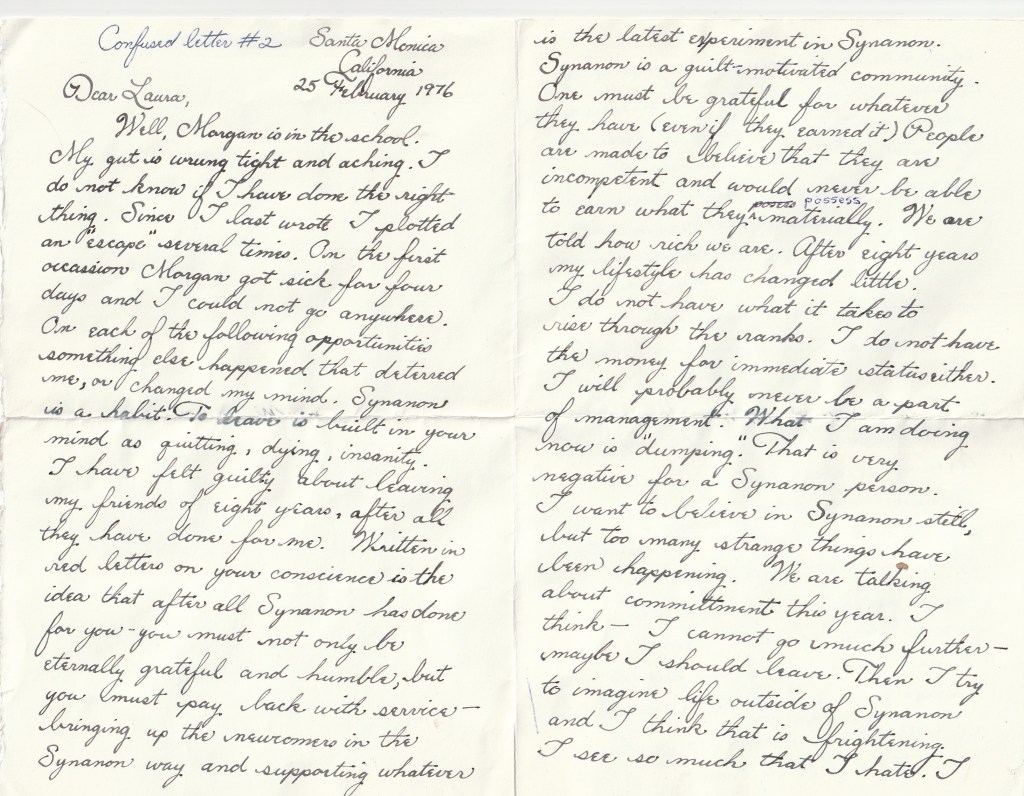 Confused letter #2
Santa Monica
California
25 February 1976
Dear Laura,
Well, Morgan is in the school.
My gut is wrung tight and aching. I
do not know if I have done the right
thing. Since I last wrote I plotted
an "escape" several times. On the first
occassion Morgan got sick for four
days and I could not go anywhere.
On each of the following opportunities
something else happened that deterred
me, or changed my mind. Synanon
is a habit. To leave is built in your
mind as quitting, dying, insanity.
I have felt guilty about leaving
my friends of eight years, after all
they have done for me. Written in
red letters on your conscience is the
idea that after all Synanon has done
for you - you must not only be
eternally grateful and humble, but
you must pay back with service —
bringing up the newcomers in the
Synanon way and supporting whatever
is the latest experiment in Synanon.
Synanon is a guilt-motivated community.
One must be grateful for whatever
they have (even if they earned it) People
are made to believe that they are
incompetent and would never be able
to earn what they possess materially. We are
told how rich we are. After eight years
my lifestyle has changed little.
I do not have what it takes to
rise through the ranks. I do not have
the money for immediate status either.
I will probably never be a part
of management. What I am doing
now is "dumping." That is very
negative for a Synanon person.
I want to believe in Synanon still,
but too many strange things have
been happening. We are talking
about committment this year. I
think — I cannot go much further —
maybe I should leave. Then I try
to imagine life outside of Synanon
and I think that is frightening.
I see so much that I hate. I